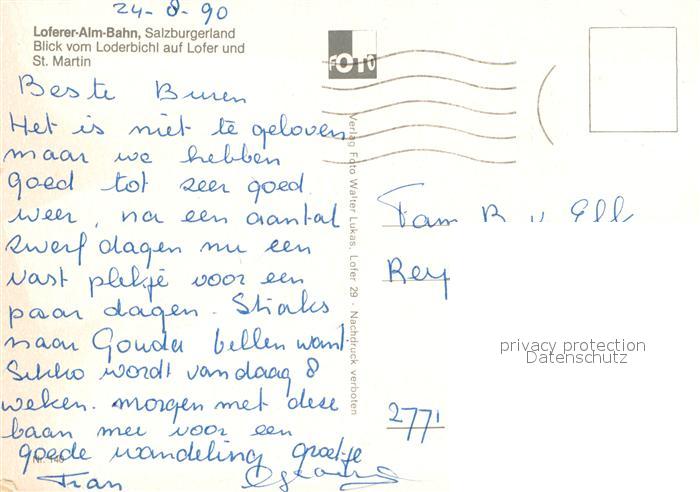 24-8-90
Loferer-Alm-Bahn, Salzburgerland
Blick vom Loderbichl auf Lofer und
St. Martin
FOTO
Beste Buren
Het is niet te geloven
maar we hebben
goed tot zeer goed
weer, na een aantal
zwerf dagen nu een
vast plekje voor een
paar dagen. Straks
naar Gouda bellen want
Sikko wordt vandaag 8
weken. morgen met deze
baan mee voor een
goede wandeling groetje
Fran
Nr. 140
Verlag Foto Walter Lukas, Lofer 29 · Nachdruck verboten
Fam R
Rey
2771
privacy protection
Datenschutz